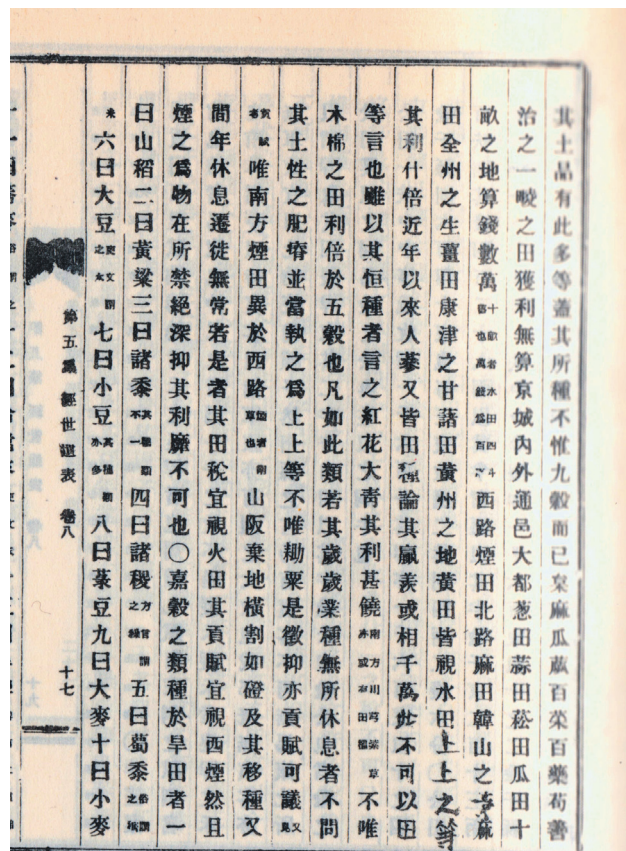 其土品有此多等蓋其所種不惟九穀而已枲麻瓜蓏百菜百藥苟善
治之一畯之田獲利無算京城內外通邑大都葱田蒜田菘田瓜田十
畝之地算錢數萬十畝者水田四斗落也萬錢爲百西路煙田北路麻田韓山之麻
田全州之生薑田康津之甘藷田黃州之地黃田皆視水田上上之等
其利什倍近年以來人蔘又皆田種論其贏羨或相千萬此不可以田
等言也雖以其恒種者言之紅花大靑其利甚饒南方川芎紫草亦或有田種不唯
木棉之田利倍於五穀也凡如此類若其歲歲業種無所休息者不問
其土性之肥瘠並當執之爲上上等不唯耡粟是徵抑亦貢賦可議又見
貢賦考唯南方煙田異於西路山阪棄地橫割如磴及其移種又
間年休息遷徙無常若是者其田稅宜視火田其貢賦宜視西煙然且
煙之爲物在所禁絕深抑其利靡不可也〇嘉穀之類種於旱田者一
曰山稻二曰黃粱三曰諸黍其種不一四曰諸稷方言謂之五曰蜀黍俗謂之
六曰大豆七曰小豆其種亦多八曰菉豆九曰大麥十曰小麥
第五集 經世遺表 卷八
十七